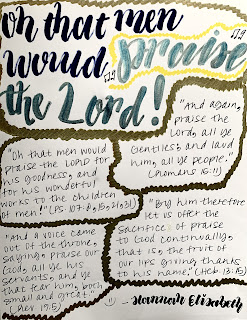 Oh that men
would praise
the Lord!
"Oh that men would
praise the LORD for
his goodness, and
for his wonderful
works to the children
of men!" (PS. 107:8,15,21,31)
"And again,
praise the
Lord, all ye
Gentiles; and laud
him, all ye people."
(Romans 15:11)
"And a voice came
out of the throne,
saying, praise our
God, all ye his
servants, and ye
that fear him, both
small and great."
(Rev 19:5)
"By him therefore
let us offer the
sacrifice of praise
to God continually,
that is, the fruit of
our lips giving thanks
to his name." (Heb. 13:15)
- Hannah Elizabeth